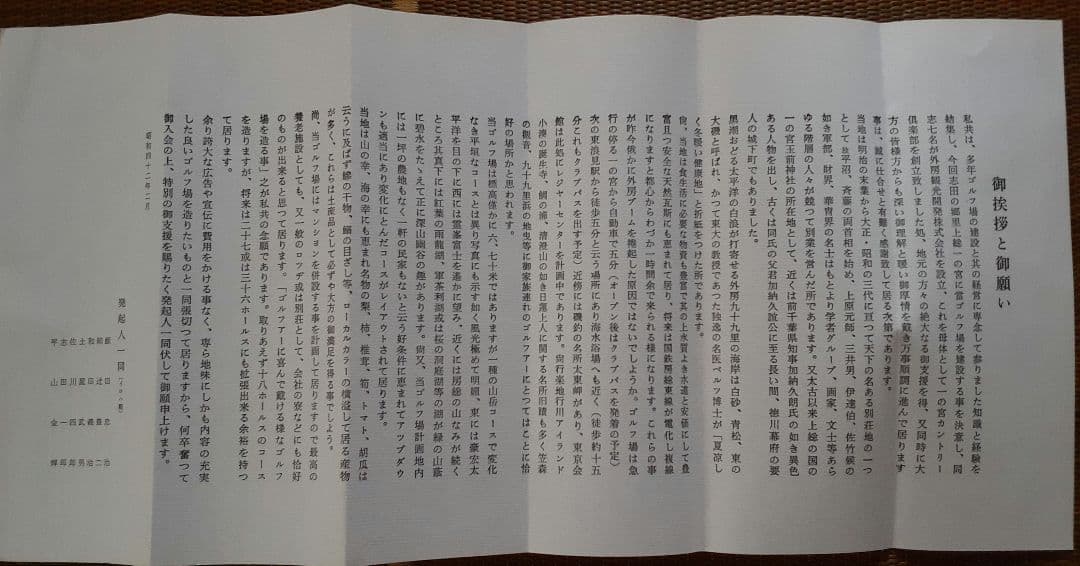 御挨拶と御願い
私共は、多年ゴルフ場の建設と其の経営に専念して参りました知識と経験を
結集し、今回志田の郷里上総一の宮に當ゴルフ場を建設する事を決意し、同
志七名が外房観光開発株式会社を設立、これを母体として一の宮カントリー
倶楽部を創立致しました処、地元の方々の絶大なる御支援を得、又同時に大
方の皆様方からも深い御理解と暖い御厚情を戴き万事順調に進んで居ります
事は、誠に仕合せと有難く感謝致して居る次第であります。
当地は明治の末葉から大正・昭和の三代に亘つて天下の名ある別荘地の一つ
として故平沼、斉藤の両首相を始め、上原元帥、三井男、伊達伯、佐竹候の
如き軍部、財界、華胄界の名士はもとより学者グループ、画家、文士等あら
ゆる階層の人々が競つて別業を営んだ所であります。又太古以来上総の国の
一の宮玉前神社の所在地として、近くは前千葉県知事加納久朗氏の如き異色
ある人物を出し、古くは同氏の父君加納久誼公に至る長い間、徳川幕府の要
人の城下町でもありました。
黒潮おどる太平洋の白浪が打寄せる外房九十九里の海岸は白砂、青松、東の
大磯と呼ばれ、かつて東大の教授であつた独逸の名医ベルツ博士が「夏涼し
く冬暖い健康地」と折紙をつけた所であります。
尚、当地は食生活に必要な物資も豊富で其の上水質よき水道と安価にして豊
富且つ安全な天然瓦斯にも恵まれて居り、将来は国鉄房総東線が電化し複線
になりますと都心からわづか一時間余で来られる様になります。これらの事
が昨今俄かに外房ブームを捲起した原因ではないでしようか。ゴルフ場は急
行の停る一の宮から自動車で五分（オープン後はクラブバスを発着の予定）
次の東浪見駅から徒歩五分と云う場所にあり海水浴場へも近く（徒歩約十五
分これもクラブバスを出す予定）近傍には磯釣の名所太東岬があり、東京会
館は此処にレジャーセンターを計画中であります。尚行楽地行川アイランド
小湊の誕生寺、鯛の浦、清澄山の如き日蓮上人に関する名所旧蹟も多く笠森
の観音、九十九里浜の地曳等に御家族連れのゴルフアーにとつてはことに恰
好の場所かと思われます。
当ゴルフ場は標高僅かに六、七十米ではありますが一種の山岳コースで変化
なき平坦なコースとは異り写真にも示す如く風光極めて明媚、東には豪宏太
平洋を目の下に西には霊峯富士を遥かに望み、近くには房総の山なみが続く
ところ其真下には紅葉の雨龍湖、軍茶利湖或は桜の洞庭湖等の湖が緑の山蔭
に碧水をたゝえて正に深山幽谷の趣があります。尚又、当ゴルフ場計画地内
には一坪の農地もなく一軒の民家もないと云う好条件に恵まれてアツプダウ
ンも適当にあり変化にとんだコースがレイアウトされて居ります。
当地は山の幸、海の幸にも恵まれ名物の梨、柿、椎茸、筍、トマト、胡瓜は
云うに及ばず鰺の干物、鰯の目ざし等、ローカルカラーの横溢して居る産物
が多く、これらは土産品として必ずや大方の御満足を得る事でしよう。
尚、当ゴルフ場にはマンションを併設する事を計画して居りますので最高の
養老施設としても、又一般のロツヂ或は別荘として、会社の寮などにも恰好
のものが出来ると思つて居ります。「ゴルフアーに喜んで戴ける様なゴルフ
場を造る事」之が私共の念願であります。取りあえず十八ホールスのコース
を造りますが、将来は二十七或は三十六ホールスにも拡張出来る余裕を持つ
て居ります。
余り誇大な広告や宣伝に費用をかける事なく、専ら地味にしかも内容の充実
した良いゴルフ場を造りたいものと一同張切つて居りますから、何卒奮つて
御入会の上、特別の御支援を賜りたく発起人一同伏して御願申上げます。
昭和四十二年二月
発起人一同（イロハ順）